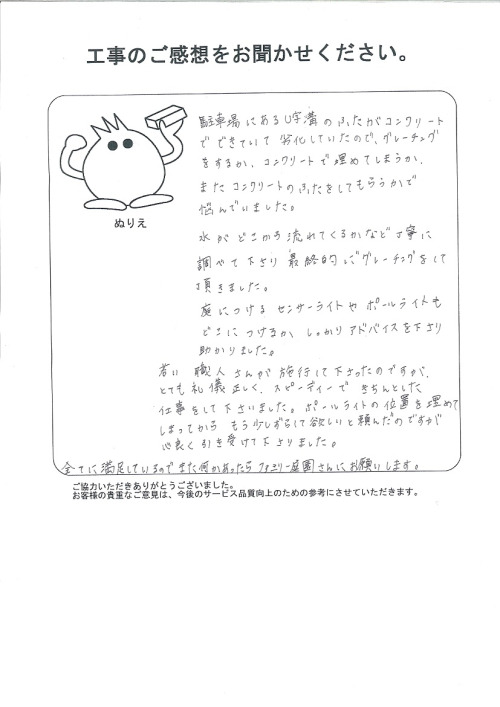 工事のご感想をお聞かせください。
駐車場にあるU字溝のふたがコンクリート
でできていて劣化していたので、グレーチング
をするか、コンクリートで埋めてしまうか、
またコンクリートのふたをしてもらうかで
悩んでいました。
ぬりえ
水がどこから流れてくるかなど丁寧に
調べて下さり最終的にグレーチングをして
頂きました。
庭につけるセンサーライトやポールライトも
どこにつけるか、しっかりアドバイスを下さり
助かりました。
若い職人さんが施行して下さったのですが、
とても礼儀正しく、スピーディーできちんとした
仕事をして下さいました。ポールライトの位置を埋めて
しまってからもう少しずらして欲しいと頼んだのですが
心良く引き受けて下さりました。
全てに満足しているのでまた何かあったらファミリー庭園さんにお願いします。
ご協力いただきありがとうございました。
お客様の貴重なご意見は、今後のサービス品質向上のための参考にさせていただきます。